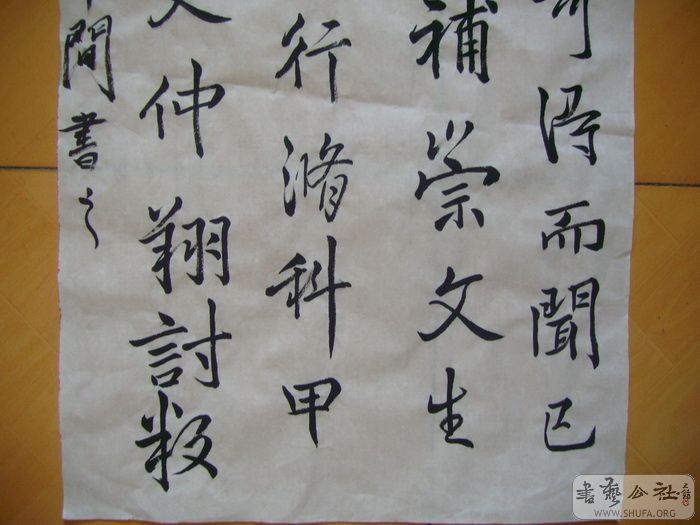 得而聞已
補崇文生
行脩科甲
仲翔討叛
間書之
書藝公社
WWW.SHUFA.ORG